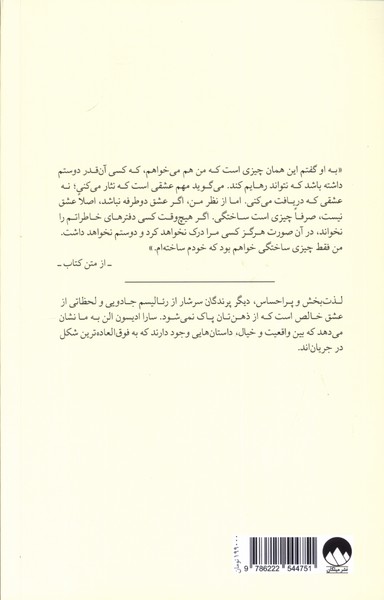 «به او گفتم این همان چیزی است که من هم می‌خواهم، که کسی آن‌قدر دوستم
داشته باشد که نتواند رهایم کند. می‌گوید مهم عشقی است که نثار می‌کنی؛ نه
عشقی که دریافت می‌کنی. اما از نظر من، اگر عشق دوطرفه نباشد، اصلاً عشق
نیست، صرفاً چیزی است ساختگی. اگر هیچ‌وقت کسی دفترهای خاطراتم را
نخواند، در آن صورت هرگز کسی مرا درک نخواهد کرد و دوستم نخواهد داشت.
من فقط چیزی ساختگی خواهم بود که خودم ساخته‌ام.»
ـ از متن کتاب ـ
لذت‌بخش و پراحساس، دیگر پرندگان سرشار از رئالیسم جادویی و لحظاتی از
عشق خالص است که از ذهن‌تان پاک نمی‌شود. سارا ادیسون الن به ما نشان
می‌دهد که بین واقعیت و خیال، داستان‌هایی وجود دارند که به فوق‌العاده‌ترین شکل
در جریان‌اند.
۱۹۹۰۰۰ تومان
9 786222 544751
نشر میلکان